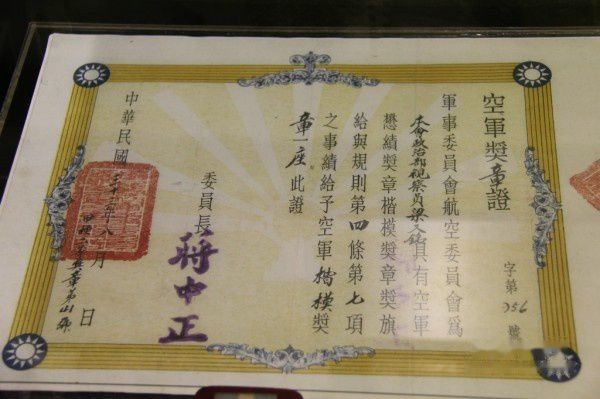 空軍獎章證
字第 號
軍事委員會航空委員會爲
本會政治部視察員梁又銘具有空軍
懋績獎章楷模獎章獎旗
給與規則第四條第七項
之事績給予空軍楷模獎
章一座此證
委員長 蔣中正
中華民國三十三年八月 日